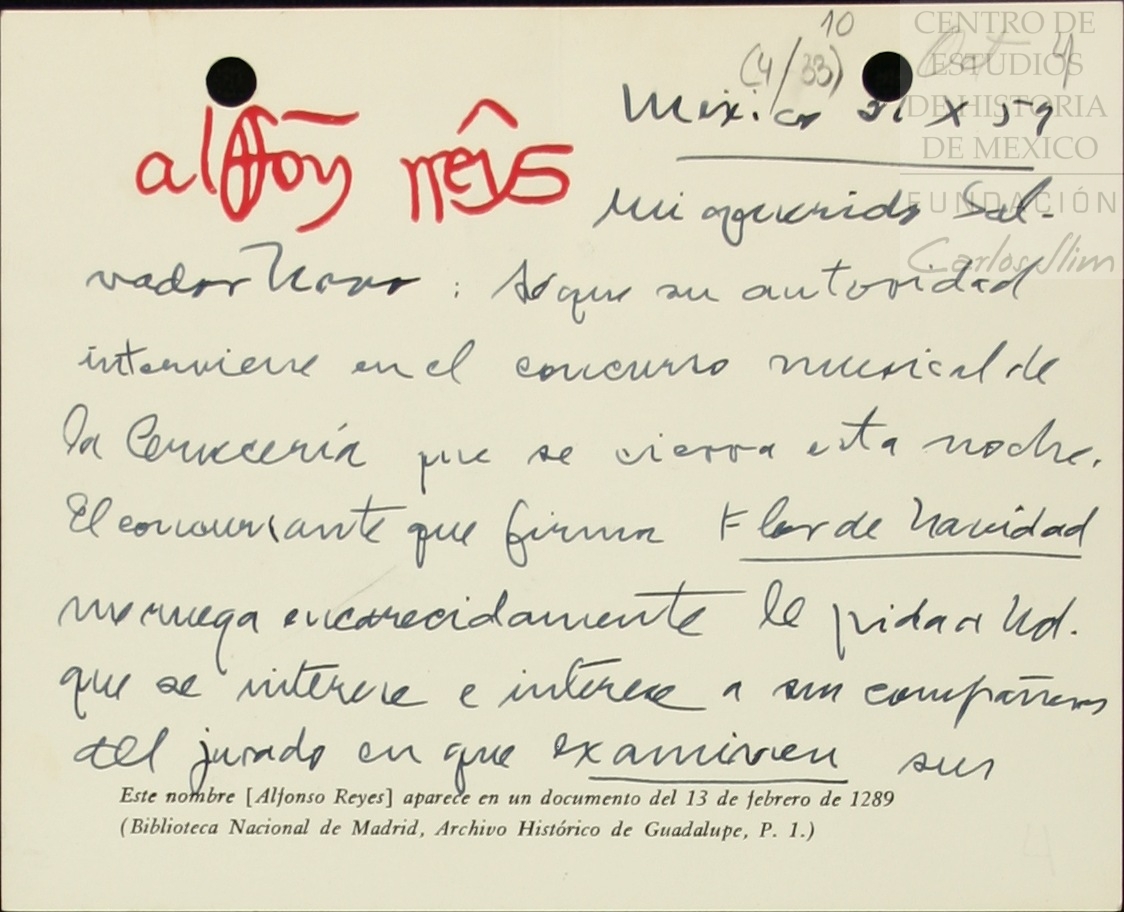 10
(4/33)
CENTRO DE
ESTUDIOS
DE HISTORIA
DE MEXICO
FUNDACIÓN
Carlos Slim
alffoñ rreys
México X 59
Mi querido Sal-
vador Novo: Sé que su autoridad
interviene en el concurso musical de
la Cervecería que se cierra esta noche.
El concursante que firma Flor de Navidad
me ruega encarecidamente le pida a Ud.
que se interese e interese a sus compañeros
del jurado en que examinen sus
Este nombre [Alfonso Reyes] aparece en un documento del 13 de febrero de 1289
(Biblioteca Nacional de Madrid, Archivo Histórico de Guadalupe, P. 1.)